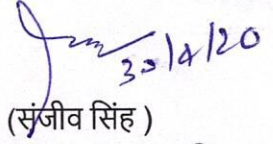 30/4/20
(संजीव सिंह )